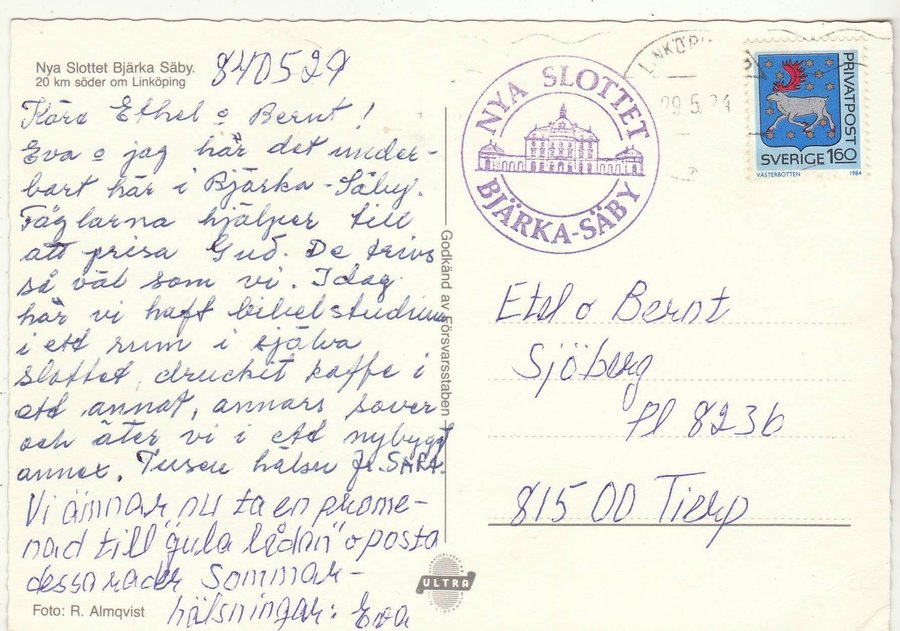 Nya Slottet Bjärka Säby.
20 km söder om Linköping
840529
Kära Ethel o Bernt!
Eva o jag har det under-
bart här i Bjärka-Säby.
Fåglarna hjälper till
att prisa Gud. De trivs
så väl som vi. Idag
har vi haft bibelstudium
i ett rum i själva
slottet, druckit kaffe i
ett annat, annars sover
och äter vi i ett nybyggt
annex. Tusen hälsn
Vi ämnar nu ta en prome-
nad till "gula lådan" o posta
dessa rader Sommar-
hälsningar: Eva
Foto: R. Almqvist
Godkänd av Försvarsstaben
ULTRA
NYA SLOTTET
BJÄRKA-SÄBY
29.5.84
PRIVATPOST
SVERIGE 160
VÄSTERBOTTEN 1984
Etel o Bernt
Sjöberg
Pl 8236
815 00 Tierp